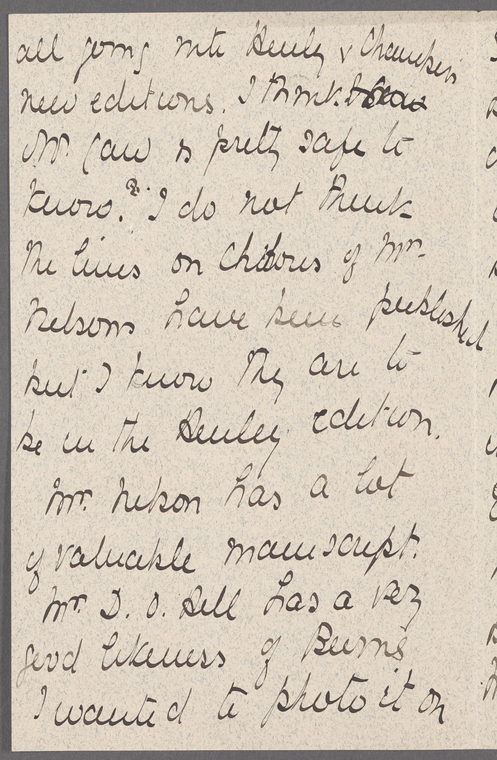 all going into Henley & Chambers
new editions. I think
Mr. Caw is pretty safe to
know.? I do not think
the lines on Chloris of Mr.
Nelsons have been published
but I know they are to
be in the Henley edition.
Mr. Nelson has a lot
of valuable manuscript.
Mr D. O. Hill has a very
good likeness of Burns
I wanted to photo it on